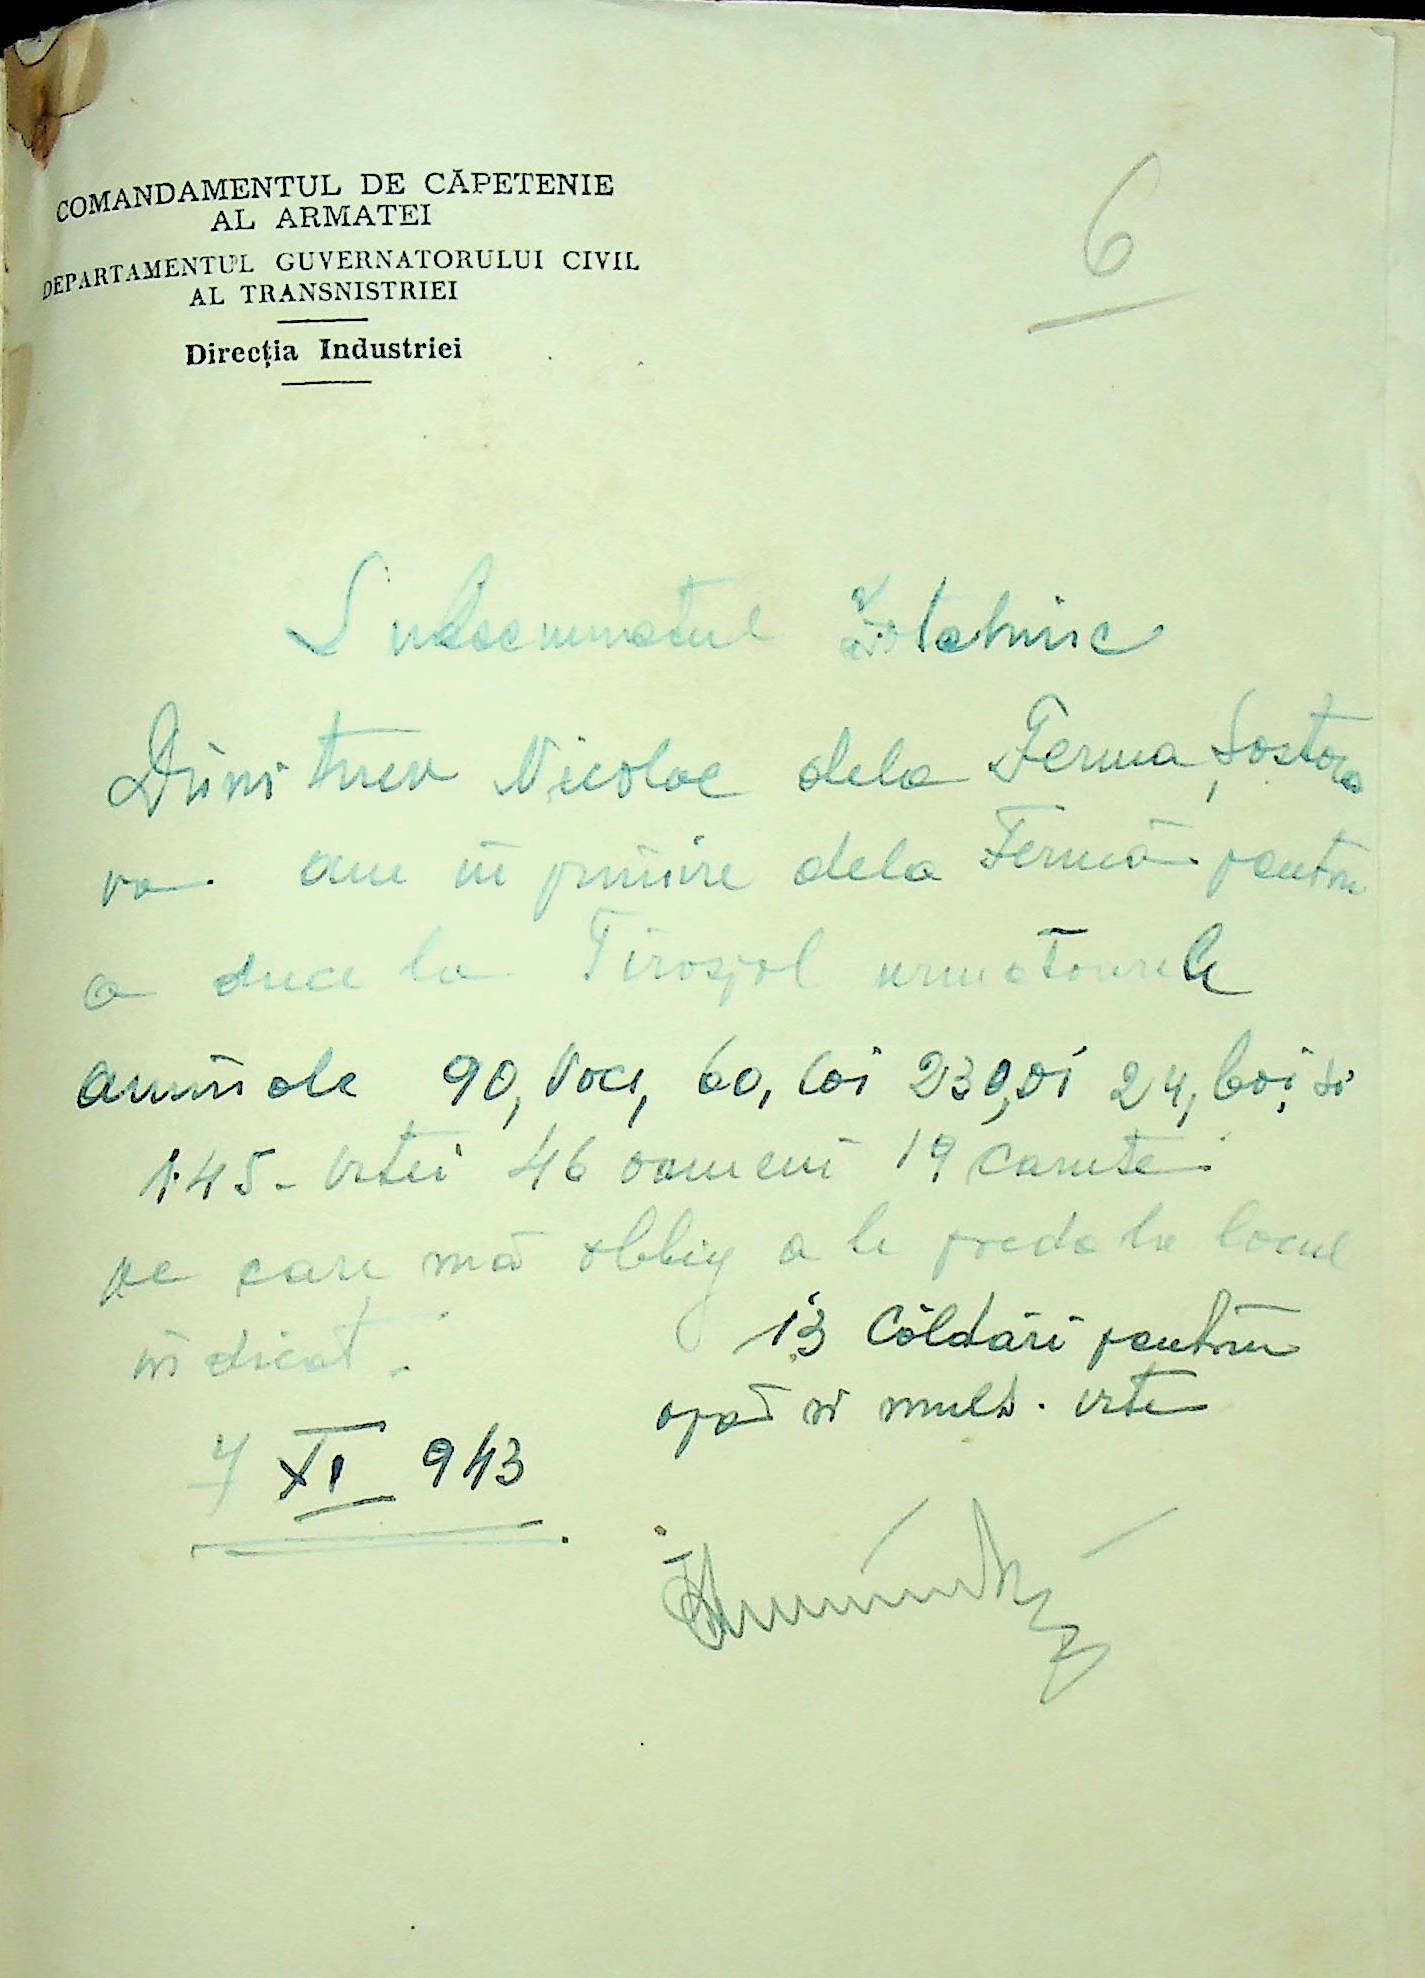 COMANDAMENTUL DE CĂPETENIE
AL ARMATEI
DEPARTAMENTUL GUVERNATORULUI CIVIL
AL TRANSNISTRIEI
Direcția Industriei
6
Subsemnatul
Dimitrev Nicolae dela Ferma Șostoa
va. am în primire dela Fermă pentru
a duce la Tirospol urmatoarele
animale 90, vaci, 60, cai 230, oi 24, boi, si
145 - vitei 46 oameni 19 carute
pe care mă oblig a le preda la locul
indicat.
13 Căldări pentru
apă si muls. vite
7 XI 943